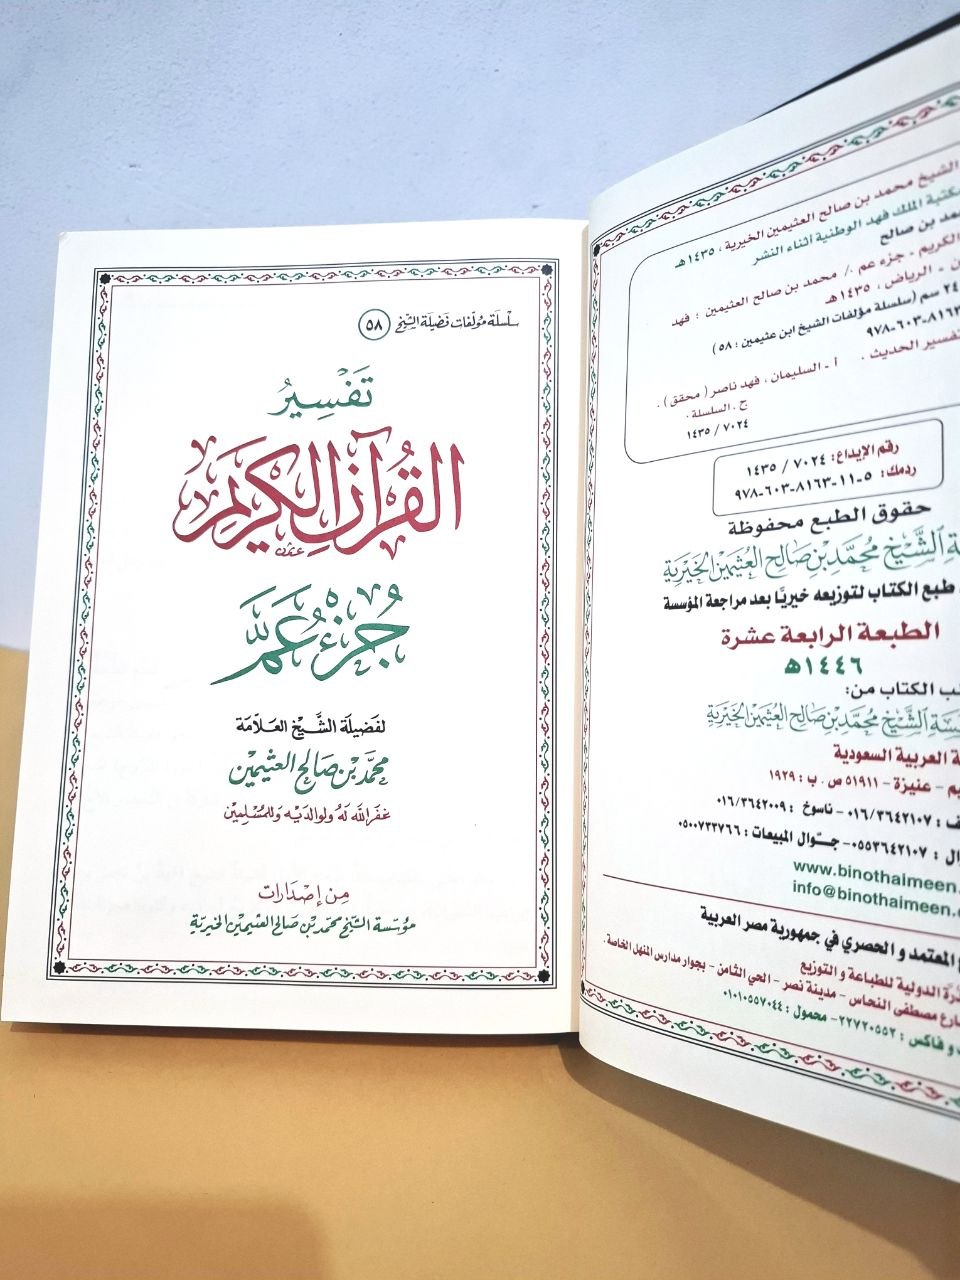 سلسلة مؤلفات فضيلة الشيخ ٥٨
تَفْسِيرُ
القُرآنِ الكَرِيمِ
جُزْءُ عَمَّ
لفضيلة الشيخ العلامة
محمد بن صالح العثيمين
غفر الله له ولوالديه وللمسلمين
من إصدارات
مؤسسة الشيخ محمد بن صالح العثيمين الخيرية
الشيخ محمد بن صالح العثيمين الخيرية ، ١٤٣٥هـ
مكتبة الملك فهد الوطنية أثناء النشر
مد بن صالح
الكريم - جزء عم ./ محمد بن صالح العثيمين ؛ فهد
ن - الرياض ، ١٤٣٥هـ
٢٤ سم (سلسلة مؤلفات الشيخ ابن عثيمين ؛ ٥٨)
٩٧٨-٦٠٣-٨١٦٣
تفسير الحديث . أ - السليمان ، فهد ناصر ( محقق ) .
ج . السلسلة .
١٤٣٥ / ٧٠٢٤
رقم الإيداع: ٧٠٢٤ / ١٤٣٥
ردمك: ٥-١١-٨١٦٣-٦٠٣-٩٧٨
حقوق الطبع محفوظة
الشيخ محمد بن صالح العثيمين الخيرية
طبع الكتاب لتوزيعه خيريًا بعد مراجعة المؤسسة
الطبعة الرابعة عشرة
١٤٤٦هـ
الكتاب من:
الشيخ محمد بن صالح العثيمين الخيرية
العربية السعودية
يم - عنيزة - ٥١٩١١ ص . ب : ١٩٢٩
ف : ٠١٦/٣٦٤٢١٠٧ - ناسوخ : ٠١٦/٣٦٤٢٠٠٩
وال : ٠٥٥٣٦٤٢١٠٧ - جوّال المبيعات : ٠٥٠٠٧٣٣٧٦٦
www.binothaimeen.
info@binothaimeen.
المعتمد و الحصري في جمهورية مصر العربية
الدولية للطباعة و التوزيع
ارع مصطفى النحاس - مدينة نصر - الحي الثامن - بجوار مدارس المنهل الخاصة .
و فاكس : ٢٢٧٢٠٥٥٢ - محمول : ٠١٠١٠٥٥٧٠٤٤